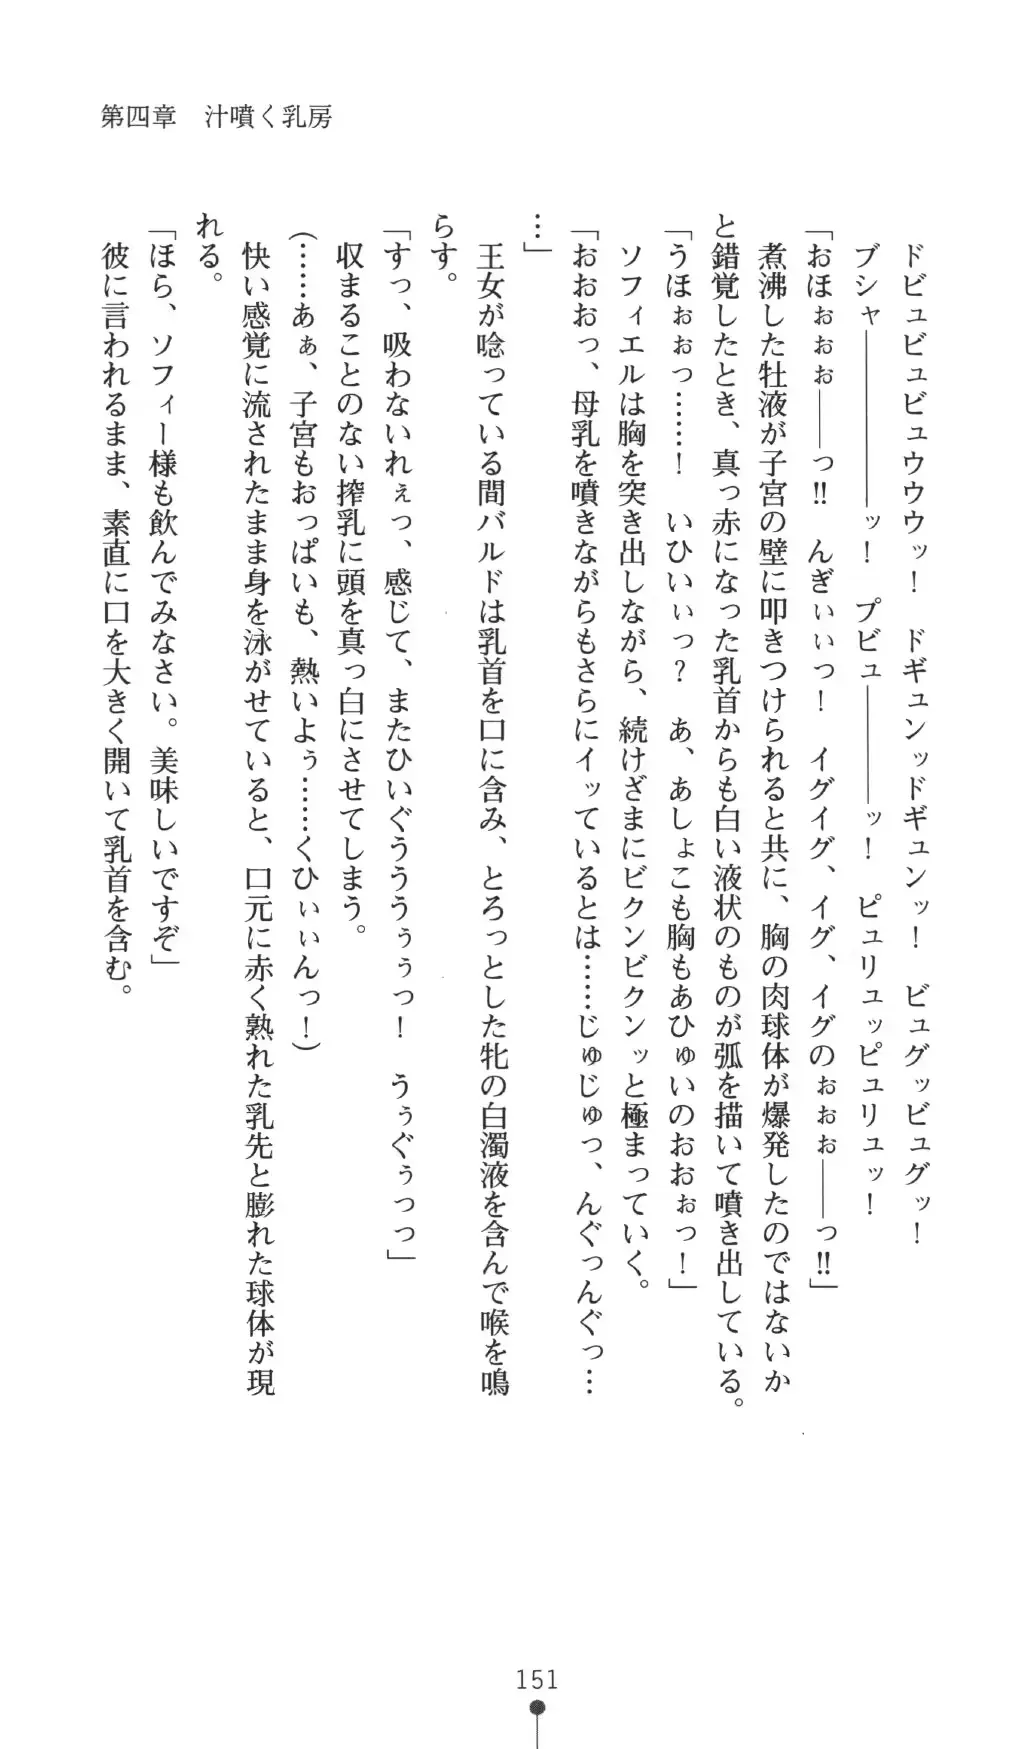 第四章　汁噴く乳房
ドビュビュビュウウウッ！　ドギュンッドギュンッ！　ビュグッビュグッ！
ブシャ――――ッ！　プビュ――――ッ！　ピュリュッピュリュッ！
「おほぉぉぉ――っ!!　んぎぃぃっ！　イグイグ、イグ、イグのぉぉぉ――っ!!」
煮沸した牡液が子宮の壁に叩きつけられると共に、胸の肉球体が爆発したのではないか
と錯覚したとき、真っ赤になった乳首からも白い液状のものが弧を描いて噴き出している。
「うほぉぉっ……！　いひいぃっ？　あ、あしょこも胸もあひゅいのおおぉっ！」
ソフィエルは胸を突き出しながら、続けざまにビクンビクンッと極まっていく。
「おおおっ、母乳を噴きながらもさらにイッているとは……じゅじゅっ、んぐっんぐっ…
…」
王女が唸っている間バルドは乳首を口に含み、とろっとした牝の白濁液を含んで喉を鳴
らす。
「すっ、吸わないれぇっ、感じて、またひいぐううぅぅっ！　うぅぐぅっっ」
収まることのない搾乳に頭を真っ白にさせてしまう。
（……あぁ、子宮もおっぱいも、熱いよぅ……くひぃぃんっ！）
快い感覚に流されたまま身を泳がせていると、口元に赤く熟れた乳先と膨れた球体が現
れる。
「ほら、ソフィー様も飲んでみなさい。美味しいですぞ」
彼に言われるまま、素直に口を大きく開いて乳首を含む。
151